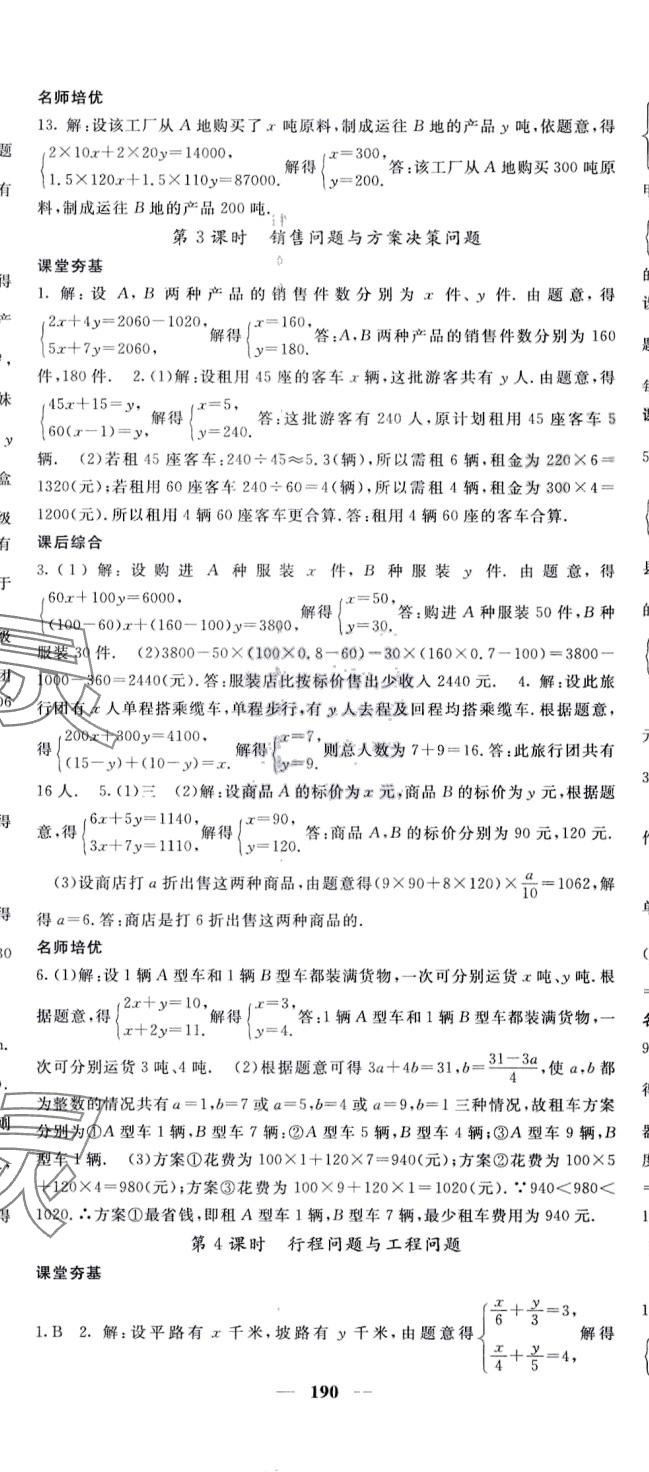 名师培优
13. 解:设该工厂从 A 地购买了 x 吨原料,制成运往 B 地的产品 y 吨,依题意,得
{2×10x+2×20y=14000, 1.5×120x+1.5×110y=87000. 解得{x=300, y=200. 答:该工厂从 A 地购买 300 吨原
料,制成运往 B 地的产品 200 吨.
第 3 课时 销售问题与方案决策问题
课堂夯基
1. 解:设 A,B 两种产品的销售件数分别为 x 件、y 件.由题意,得
{2x+4y=2060-1020, 5x+7y=2060, 解得{x=160, y=180. 答:A,B 两种产品的销售件数分别为 160
件,180 件. 2.(1)解:设租用 45 座的客车 x 辆,这批游客共有 y 人.由题意,得
{45x+15=y, 60(x-1)=y, 解得{x=5, y=240. 答:这批游客有 240 人,原计划租用 45 座客车 5
辆. (2)若租 45 座客车:240÷45≈5.3(辆),所以需租 6 辆,租金为 220×6=
1320(元);若租用 60 座客车 240÷60=4(辆),所以需租 4 辆,租金为 300×4=
1200(元).所以租用 4 辆 60 座客车更合算.答:租用 4 辆 60 座的客车合算.
课后综合
3.(1)解:设购进 A 种服装 x 件,B 种服装 y 件.由题意,得
{60x+100y=6000, (100-60)x+(160-100)y=3800, 解得{x=50, y=30. 答:购进 A 种服装 50 件,B 种
服装 30 件. (2)3800-50×(100×0.8-60)-30×(160×0.7-100)=3800-
1000-360=2440(元).答:服装店比按标价售出少收入 2440 元. 4. 解:设此旅
行团有 x 人单程搭乘缆车,单程步行,有 y 人去程及回程均搭乘缆车.根据题意,
得{200x+300y=4100, (15-y)+(10-y)=x. 解得{x=7, y=9. 则总人数为 7+9=16.答:此旅行团共有
16 人. 5.(1)三 (2)解:设商品 A 的标价为 x 元,商品 B 的标价为 y 元,根据题
意,得{6x+5y=1140, 3x+7y=1110, 解得{x=90, y=120. 答:商品 A,B 的标价分别为 90 元,120 元.
(3)设商店打 a 折出售这两种商品,由题意得(9×90+8×120)×a/10=1062,解
得 a=6.答:商店是打 6 折出售这两种商品的.
名师培优
6.(1)解:设 1 辆 A 型车和 1 辆 B 型车都装满货物,一次可分别运货 x 吨、y 吨.根
据题意,得{2x+y=10, x+2y=11. 解得{x=3, y=4. 答:1 辆 A 型车和 1 辆 B 型车都装满货物,一
次可分别运货 3 吨、4 吨. (2)根据题意可得 3a+4b=31,b=(31-3a)/4,使 a,b 都
为整数的情况共有 a=1,b=7 或 a=5,b=4 或 a=9,b=1 三种情况,故租车方案
分别为①A 型车 1 辆,B 型车 7 辆;②A 型车 5 辆,B 型车 4 辆;③A 型车 9 辆,B
型车 1 辆. (3)方案①花费为 100×1+120×7=940(元);方案②花费为 100×5
+120×4=980(元);方案③花费为 100×9+120×1=1020(元).∵940<980<
1020.∴方案①最省钱,即租 A 型车 1 辆,B 型车 7 辆,最少租车费用为 940 元.
第 4 课时 行程问题与工程问题
课堂夯基
1.B 2. 解:设平路有 x 千米,坡路有 y 千米,由题意得{x/6+y/3=3, x/4+y/5=4, 解得
190